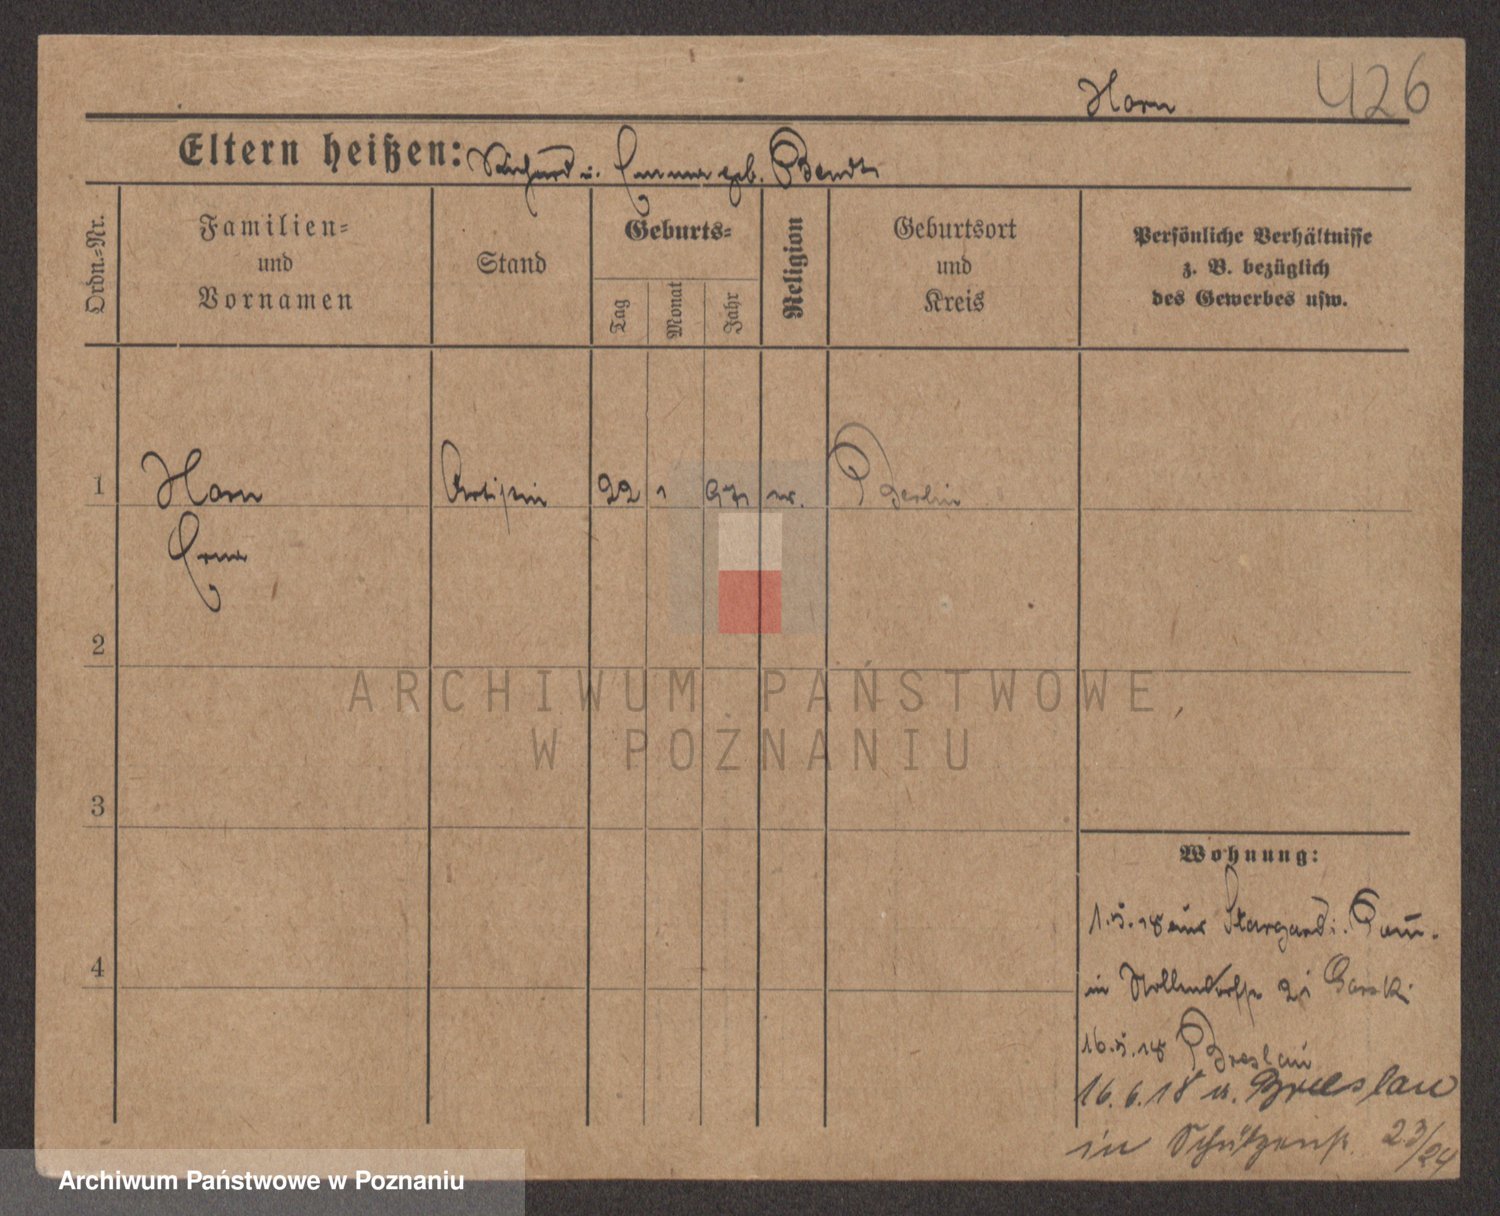 Horn 426
Eltern heißen: Richard u. Emma geb. Bendt
Ordn.-Nr.
Familien-
und
Vornamen
Stand
Geburts-
Tag
Monat
Jahr
Religion
Geburtsort
und
Kreis
Persönliche Verhältnisse
z. B. bezüglich
des Gewerbes usw.
1 Horn Artistin 22 1 97 ev. Berlin
Erna
2
ARCHIWUM PAŃSTWOWE
W POZNANIU
3
Wohnung:
1.5.18 aus Stargard i. Pom.
4
in 21 Garski
16.5.18 Breslau
16.6.18 a. Breslau
in Schützenstr. 23/24
Archiwum Państwowe w Poznaniu